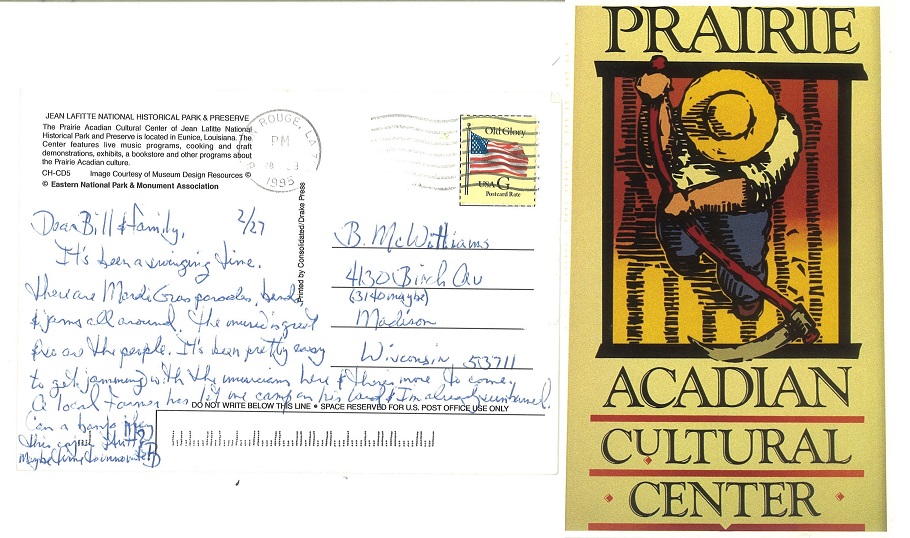 JEAN LAFITTE NATIONAL HISTORICAL PARK & PRESERVE
The Prairie Acadian Cultural Center of Jean Lafitte National
Historical Park and Preserve is located in Eunice, Louisiana. The
Center features live music programs, cooking and craft
demonstrations, exhibits, a bookstore and other programs about
the Prairie Acadian culture.
CH-CD5 Image Courtesy of Museum Design Resources ©
© Eastern National Park & Monument Association
ROUGE, LA 7
PM
1995
Old Glory
USA G
Postcard Rate
Printed by Consolidated/Drake Press
Dear Bill & family, 2/27
It's been a swinging time.
There are Mardi Gras parades, bands
& jams all around. The music is great
& so are the people. It's been pretty easy
to get jamming with the musicians here & there's more to come.
A local farmer has let me camp on his land & I'm already
Can a banjo
this
Maybe time to
B. McWilliams
4130 Birch Av
(3140 maybe)
Madison
Wisconsin 53711
DO NOT WRITE BELOW THIS LINE • SPACE RESERVED FOR U.S. POST OFFICE USE ONLY
PRAIRIE
ACADIAN
CULTURAL
CENTER